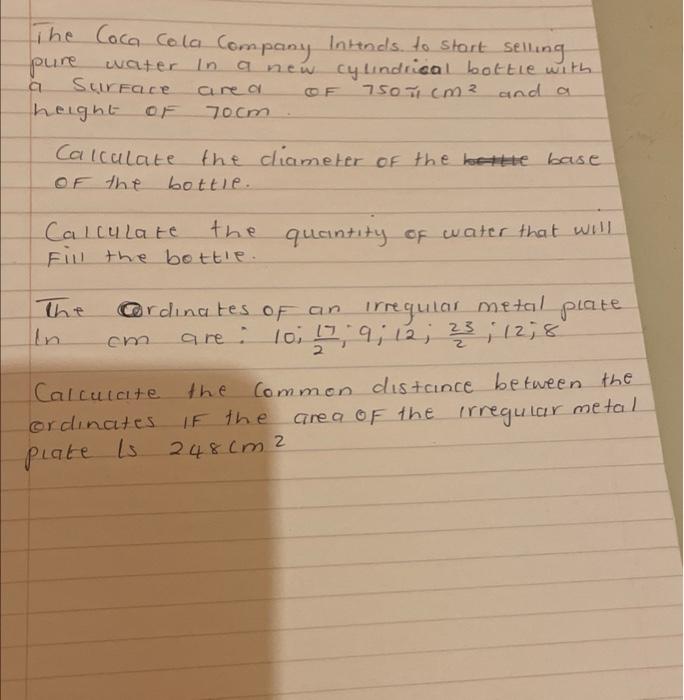 The Coca Cola Company Intends to start selling
pure water in a new cylindrical bottle with
a Surface area OF 750π cm² and a
height OF 70cm.
Calculate the diameter OF the bottle base
OF the bottle.
Calculate the quantity of water that will
Fill the bottle.
The Ordinates OF an irregular metal plate
In cm are : 10; 17/2; 9; 12; 23/2; 12; 8
Calculate the Common distance between the
ordinates IF the area OF the irregular metal
plate Is 248cm²